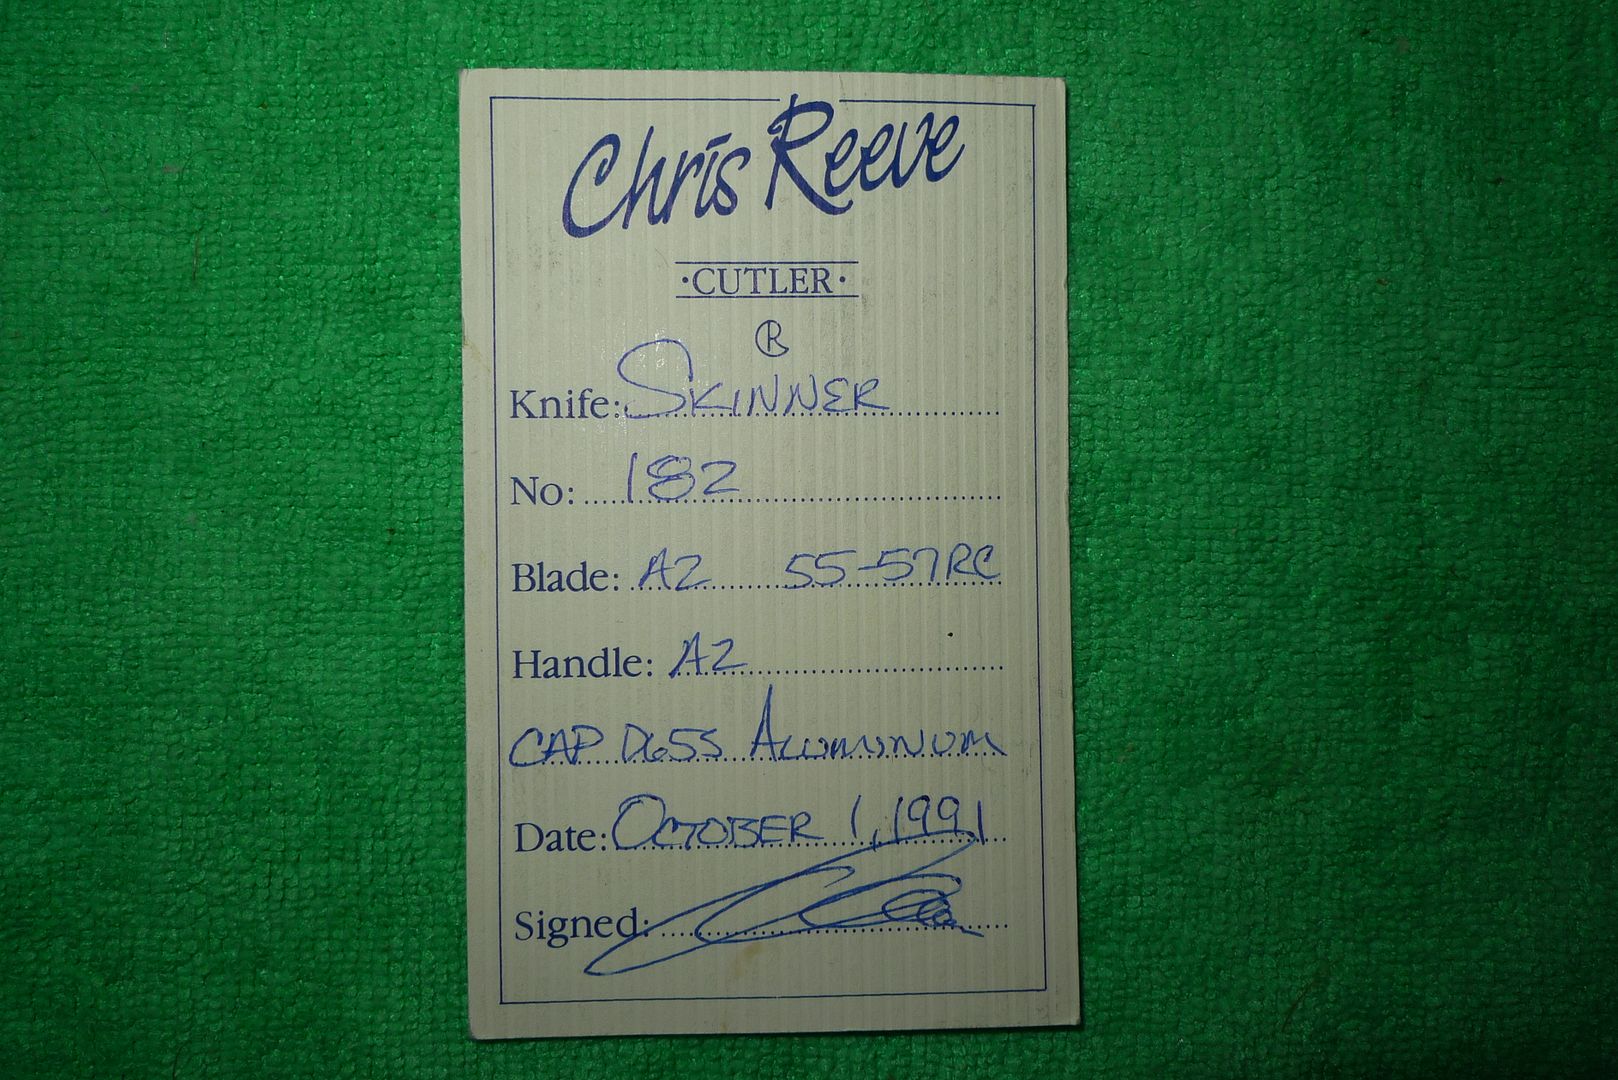 Chris Reeve
·CUTLER·
CR
Knife: SKINNER
No: 182
Blade: A2 55-57RC
Handle: A2
CAP D65S ALUMINUM
Date: OCTOBER 1, 1991
Signed: